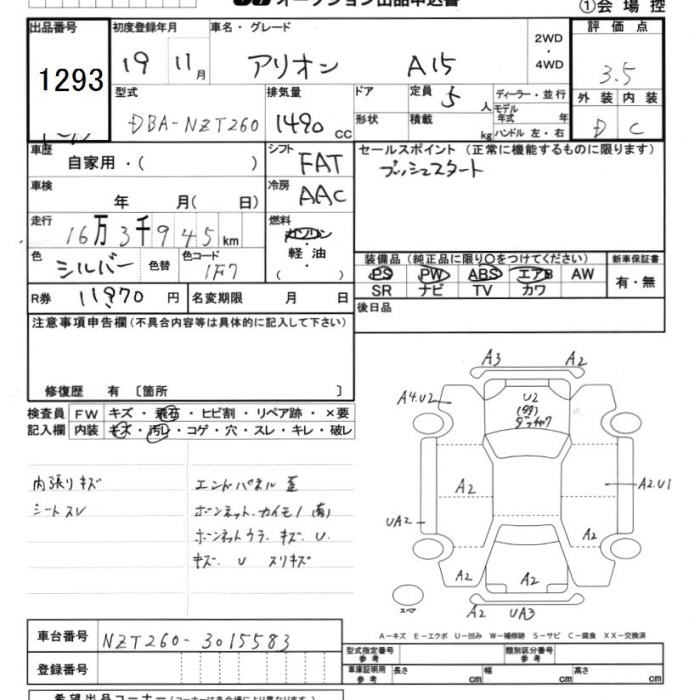 オークション出品申込書
①会場控
出品番号 初度登録年月 車名・グレード 評価点
1293 19 11月 アリオン A15 2WD・4WD 3.5
型式 排気量 ドア 定員 5人 ディーラー・並行 外装 内装
DBA-NZT260 1490cc 形状 積載 kg モデル年式 年 ハンドル 左・右 D C
車歴 シフト セールスポイント (正常に機能するものに限ります)
自家用・( ) FAT プッシュスタート
車検 冷房
年 月( 日) AAC
走行 燃料
16万3千945km ガソリン・軽油( )
装備品 (純正品に限り〇をつけてください) 新車保証書
色 シルバー 色替 色コード 1F7
PS PW ABS エアB AW 有・無
SR ナビ TV カワ
R券 11,970円 名変期限 月 日 後日品
注意事項申告欄 (不具合内容等は具体的に記入して下さい)
修復歴 有 〔箇所 〕
検査員記入欄 FW キズ・飛石・ヒビ割・リペア跡・×要
内装 キズ・汚レ・コゲ・穴・スレ・キレ・破レ
内張りキズ エンドパネル歪
シートスレ ボーンネット.カイモノ(有)
ボーンネットウラ.キズ.U.
キズ.U スリキズ
A3 A2
A4.U2 U2
A2 A2.U1
UA2 A2
A2 A2
A2 UA3
スペア
A-キズ E-エクボ U-凹み W-補修跡 S-サビ C-腐食 XX-交換済
車台番号 NZT260-3015583
型式指定番号 参考 類別区分番号 参考
登録番号 車庫証明用 参考 長さ cm 幅 cm 高さ cm
希望出品コーナー (コーナーは各会場により異なります)